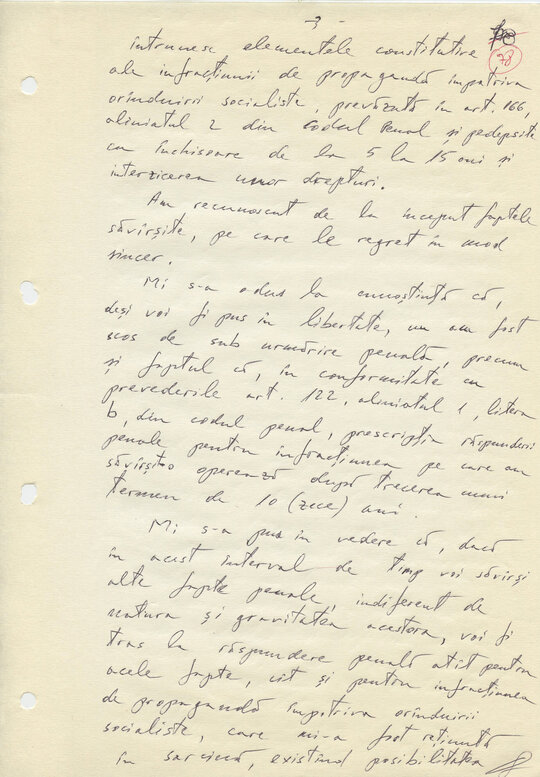 - 3 -
78
întrunesc elementele constitutive
ale infracțiunii de propagandă împotriva
orînduirii socialiste, prevăzută în art. 166,
aliniatul 2 din Codul Penal și pedepsite
cu închisoare de la 5 la 15 ani și
interzicerea unor drepturi.
Am recunoscut de la început faptele
săvîrșite, pe care le regret în mod
sincer.
Mi s-a adus la cunoștință că,
deși voi fi pus în libertate, nu am fost
scos de sub urmărire penală, precum
și faptul că, în conformitate cu
prevederile art. 122, aliniatul 1, litera
b, din codul penal, prescripția răspunderii
penale pentru infracțiunea pe care am
săvîrșit-o operează după trecerea unui
termen de 10 (zece) ani.
Mi s-a pus în vedere că, dacă
în acest interval de timp voi săvîrși
alte fapte penale, indiferent de
natura și gravitatea acestora, voi fi
tras la răspundere penală atît pentru
acele fapte, cît și pentru infracțiunea
de propagandă împotriva orînduirii
socialiste, care mi-a fost reținută
în sarcină, existînd posibilitatea